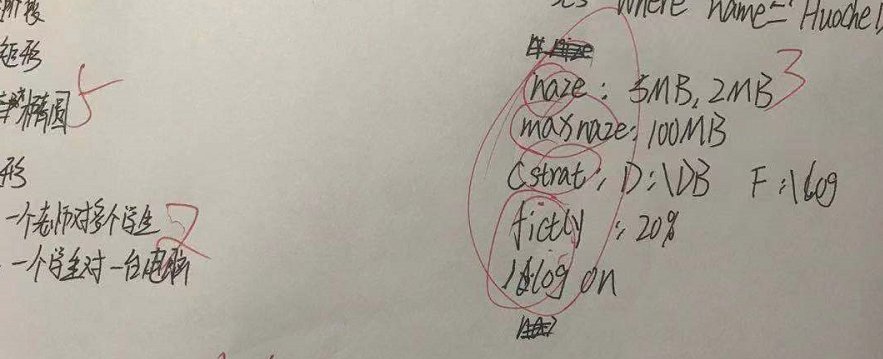 阶段
矩形
椭圆 5
形
一个老师对多个学生 2
一个学生对一台电脑
where name='Huoche
naze: 5MB, 2MB 3
maxnaze: 100MB
Cstrat: D:\DB F:\log
fictly: 20%
log on